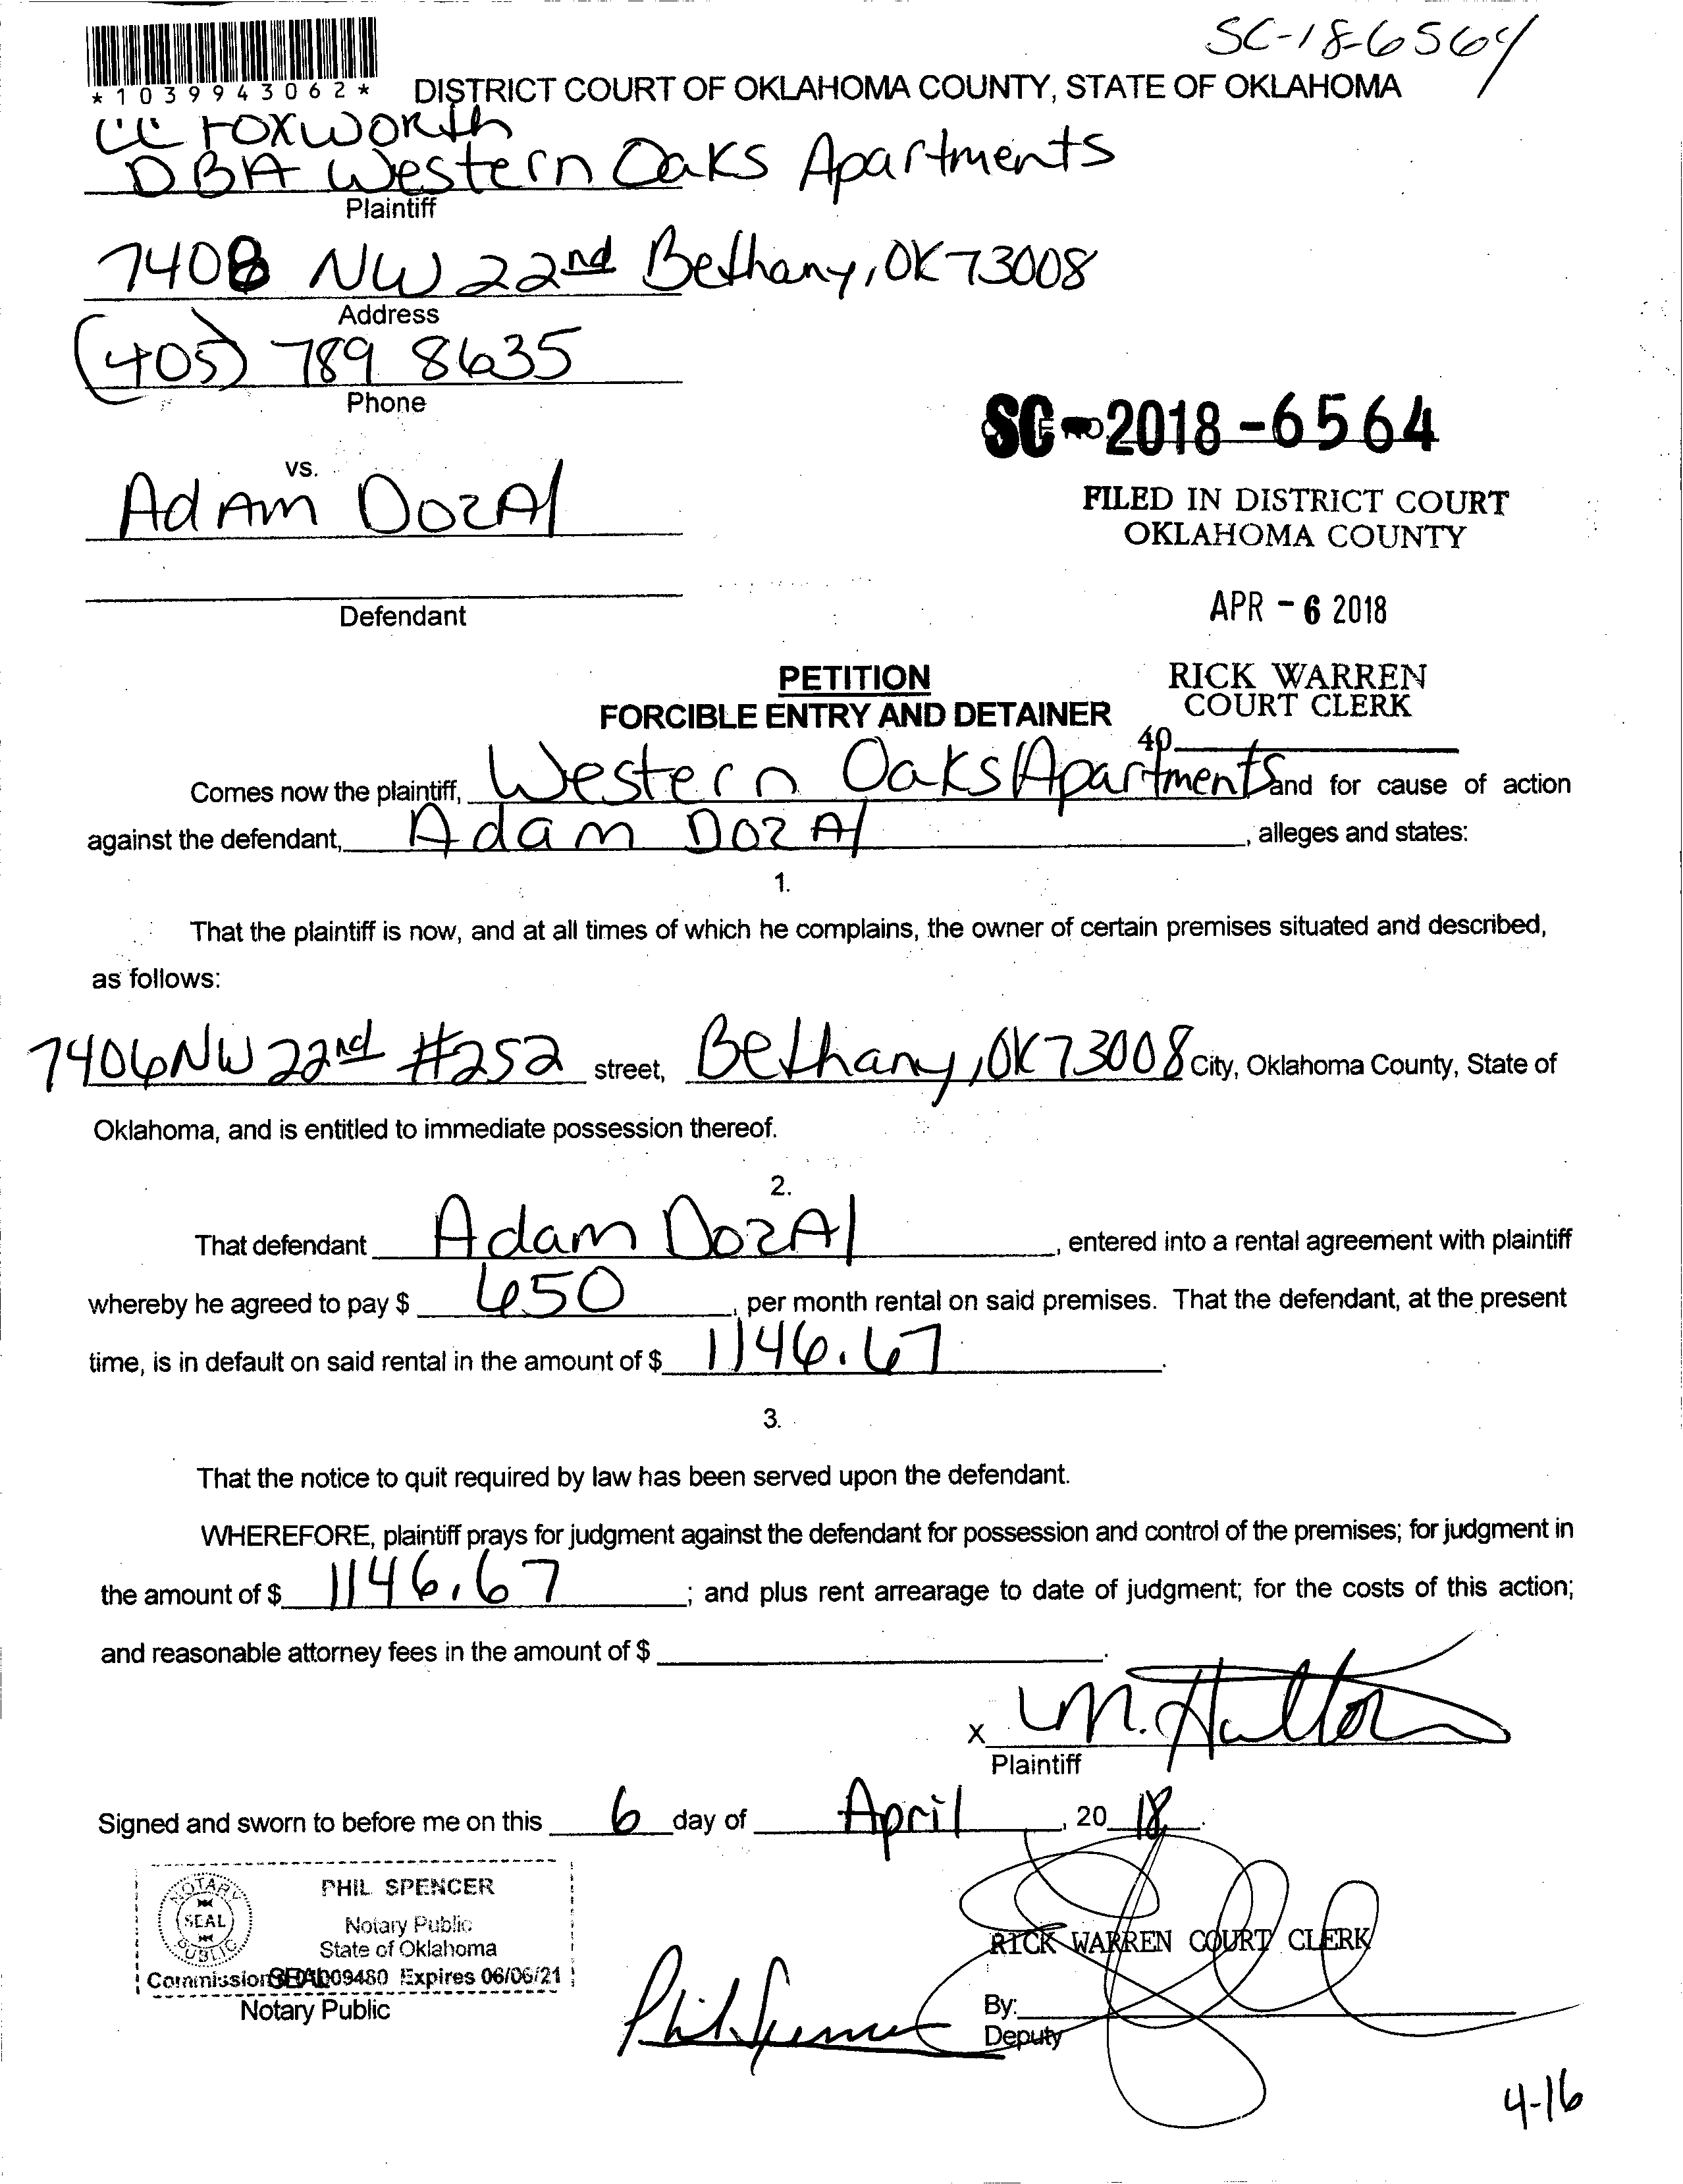 SC-18-6564
*1039943062*
DISTRICT COURT OF OKLAHOMA COUNTY, STATE OF OKLAHOMA
CC FOXWORTH
DBA Western Oaks Apartments
Plaintiff
7408 NW 22nd Bethany, OK 73008
Address
(405) 789 8635
Phone
SC-2018-6564
vs.
Adam Dozal
FILED IN DISTRICT COURT
OKLAHOMA COUNTY
Defendant
APR - 6 2018
PETITION
FORCIBLE ENTRY AND DETAINER
RICK WARREN
COURT CLERK
40
Comes now the plaintiff, Western Oaks Apartments and for cause of action
against the defendant, Adam Dozal, alleges and states:
1.
That the plaintiff is now, and at all times of which he complains, the owner of certain premises situated and described,
as follows:
7406 NW 22nd #252 street, Bethany, OK 73008 City, Oklahoma County, State of
Oklahoma, and is entitled to immediate possession thereof.
2.
That defendant Adam Dozal, entered into a rental agreement with plaintiff
whereby he agreed to pay $ 650, per month rental on said premises. That the defendant, at the present
time, is in default on said rental in the amount of $ 1146.67.
3.
That the notice to quit required by law has been served upon the defendant.
WHEREFORE, plaintiff prays for judgment against the defendant for possession and control of the premises; for judgment in
the amount of $ 1146.67; and plus rent arrearage to date of judgment; for the costs of this action;
and reasonable attorney fees in the amount of $ .
x M. Hutton
Plaintiff
Signed and sworn to before me on this 6 day of April, 20 18.
NOTARY PUBLIC SEAL
PHIL SPENCER
Notary Public
State of Oklahoma
Commission 09480 Expires 06/06/21
SEAL
Notary Public
Phil Spencer
RICK WARREN COURT CLERK
By:
Deputy
4-16